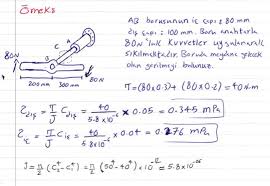 Örnek:
AB borusunun iç çapı = 80 mm
dış çapı = 100 mm. Boru anahtarla
80N'luk kuvvetler uygulanarak
sıkılmaktadır. Boruda meydana gelecek
olan gerilmeyi bulunuz.
A
B
C
80N
80N
200 mm 300 mm
T = (80x0.3) + (80x0.2) = 40 N.m
τdış = T/J Cdış = 40/5.8x10⁻⁶ x 0.05 = 0.345 MPa
τiç = T/J Ciç = 40/5.8x10⁻⁶ x 0.04 = 0.276 MPa
J = π/2 (C₂⁴ - C₁⁴) = π/2 (50⁴ - 40⁴) x 10⁻¹² = 5.8x10⁻⁰⁶